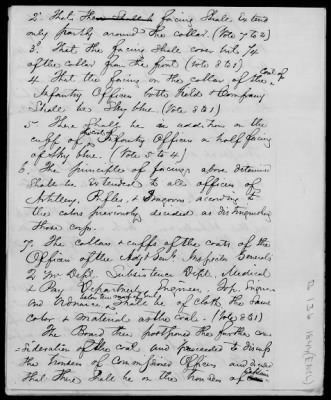 2. That the facing shall extend
only partly around the collar. (Vote 7 to 2)
3. That the facing shall cover but 1/4
of the collar from the front (Vote 8 to 1)
4. That the facing on the collar of the Coat of
Infantry Officers both Field & Company
shall be Sky blue (Vote 8 to 1)
5. There shall be in addition on the
cuff of Infantry Officers a half facing
of Sky blue. (Vote 5 to 4)
6. The principle of facings above determined
shall be extended to all officers of
Artillery, Rifles, & Dragoons according to
the colors previously decided as distinguishing
those corps.
7. The collars & cuffs of the coats of the
Officers of the Adjt Genls Inspector Generals
Qr Mr Dept. Subsistence Dept. Medical
& Pay Departments, Engineers, Top. Engrs
and Ordnance shall be of cloth the same
color & material as the coat. (Vote 8 to 1)
The Board then postponed the further con-
sideration of the coat and proceeded to discuss
the trowsers of Commissioned Officers and decided
that there shall be on the trowsers of